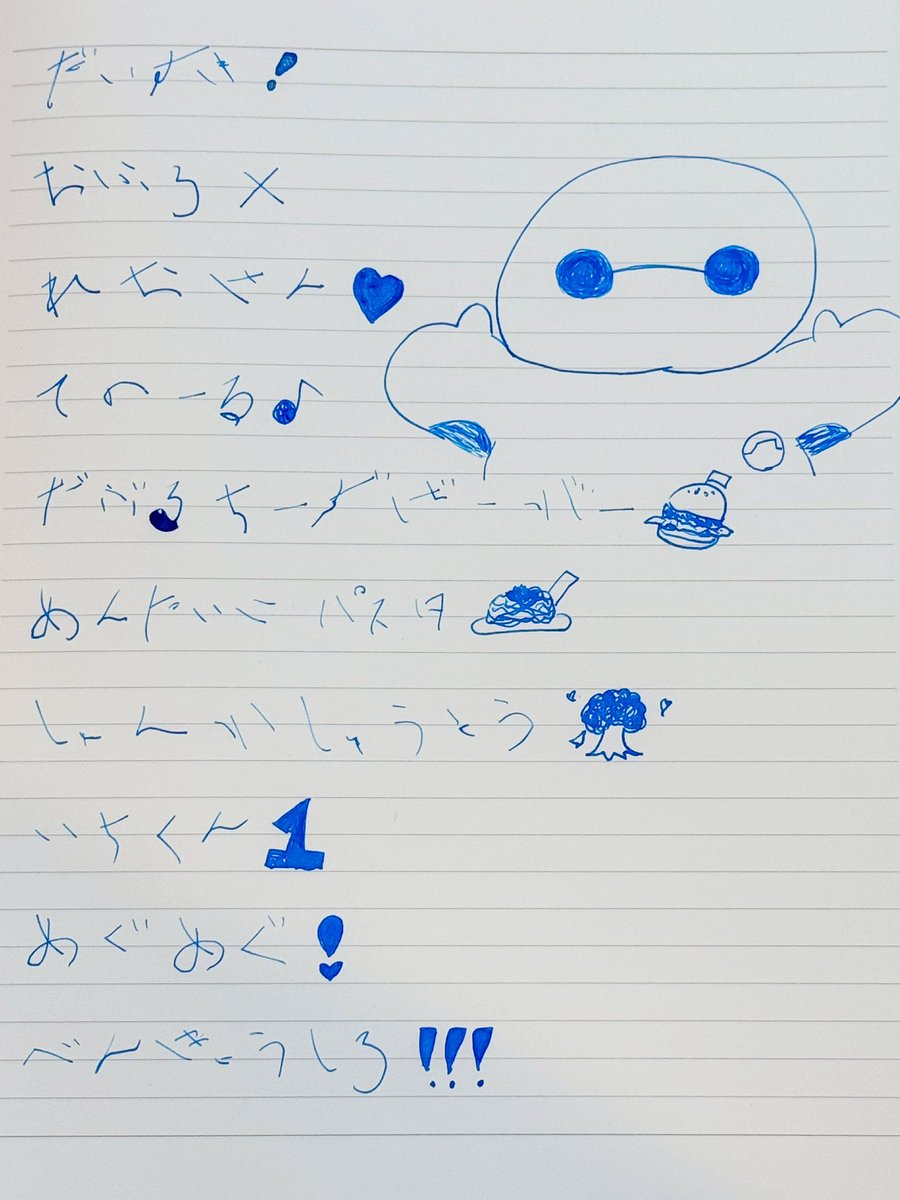 だいすき!
おふろ×
れおさん♥
てのーる♪
だぶるちーずばーがー
めんたいこパスタ
しゃんがしょうとう
いちくん1
めぐめぐ!
べんきょうしろ!!!